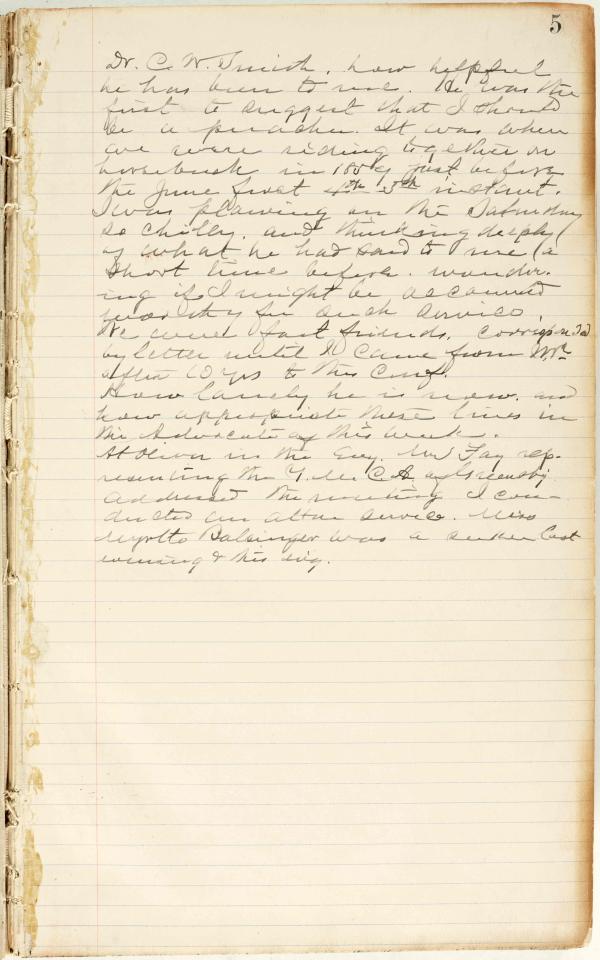 5
Dr. C. W. Smith. how helpful
he has been to me. He was the
first to suggest that I should
be a preacher. It was when
we were riding together on
horseback in 1859 just before
the June frost 4th 5th instant.
I was plowing on the Saturday
so chilly. and thinking deeply
of what he had said to me a
short time before. wonder-
ing if I might be accounted
worthy for such service.
We were fast friends. corresponded
by letter until I came from
after 10 yrs to this Conf.
How lonely he is now. and
how appropriate these lines in
the Advocate of this week.
At Oliver in the Evg. Mr Fay rep-
resenting the Y. M. C A of Greensbg
addressed the meeting I con-
ducted an altar service. Miss
Myrtto Balsinger was a seeker last
evening & this evg.